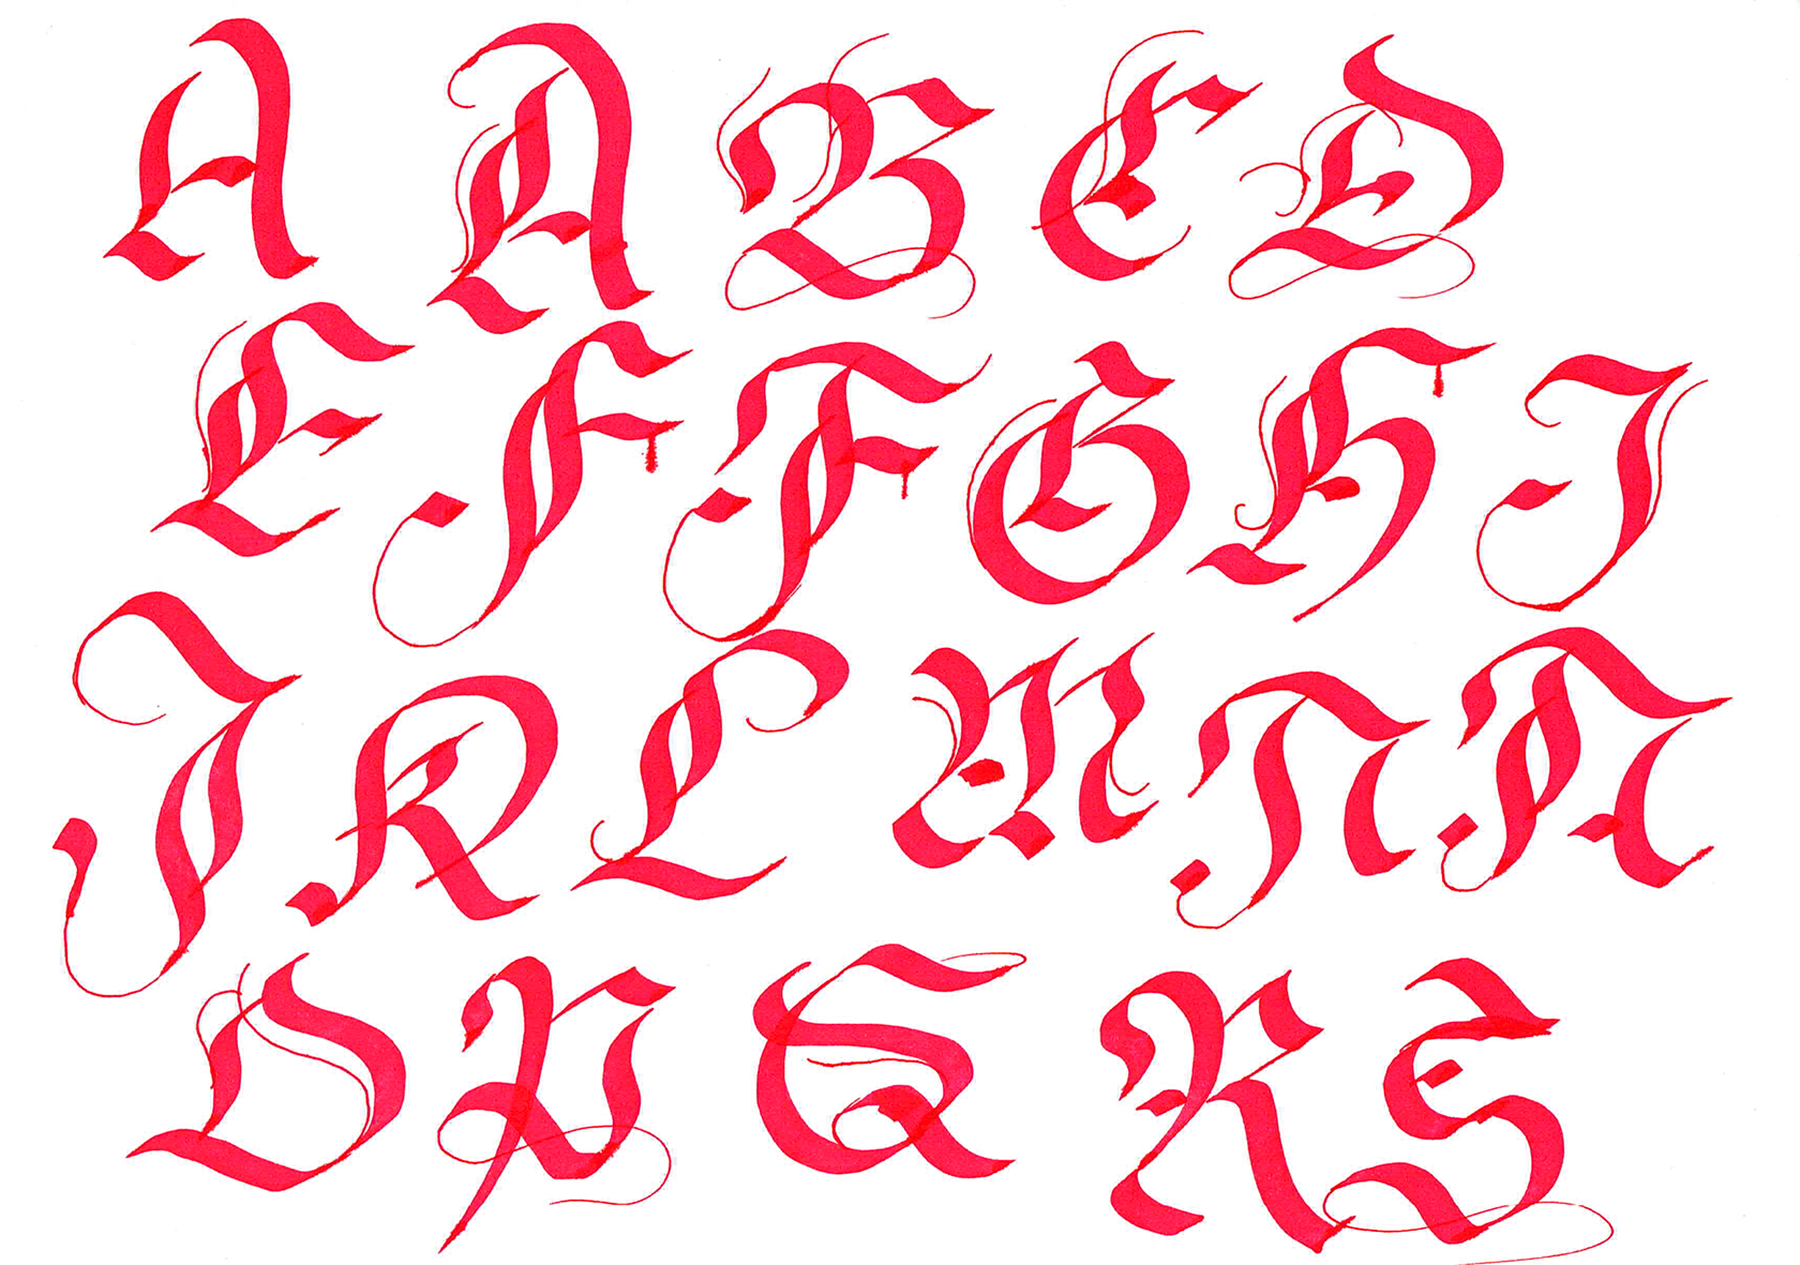 A A B C D
E F F G H I
J K L M N N
O P Q R S